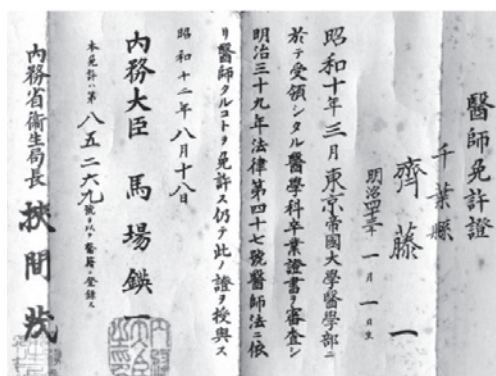 醫師免許證
千葉縣
齊藤 一
明治四十三年一月一日生
昭和十年三月東京帝國大學醫學部ニ
於テ受領シタル醫學科卒業證書ヲ審査シ
明治三十九年法律第四十七號醫師法ニ依
リ醫師タルコトヲ免許ス仍テ此ノ證ヲ授與ス
昭和十二年八月十八日
內務大臣 馬場鍈一
本免許ハ第八五二六九號ヲ以テ醫籍ニ登錄ス
內務省衞生局長 挾間茂